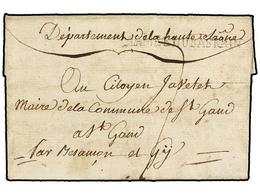 Département de la haute Saône
Au Citoyen Javelet
Maire de la Commune de St Gand
a St Gand
par Besançon et Gÿ